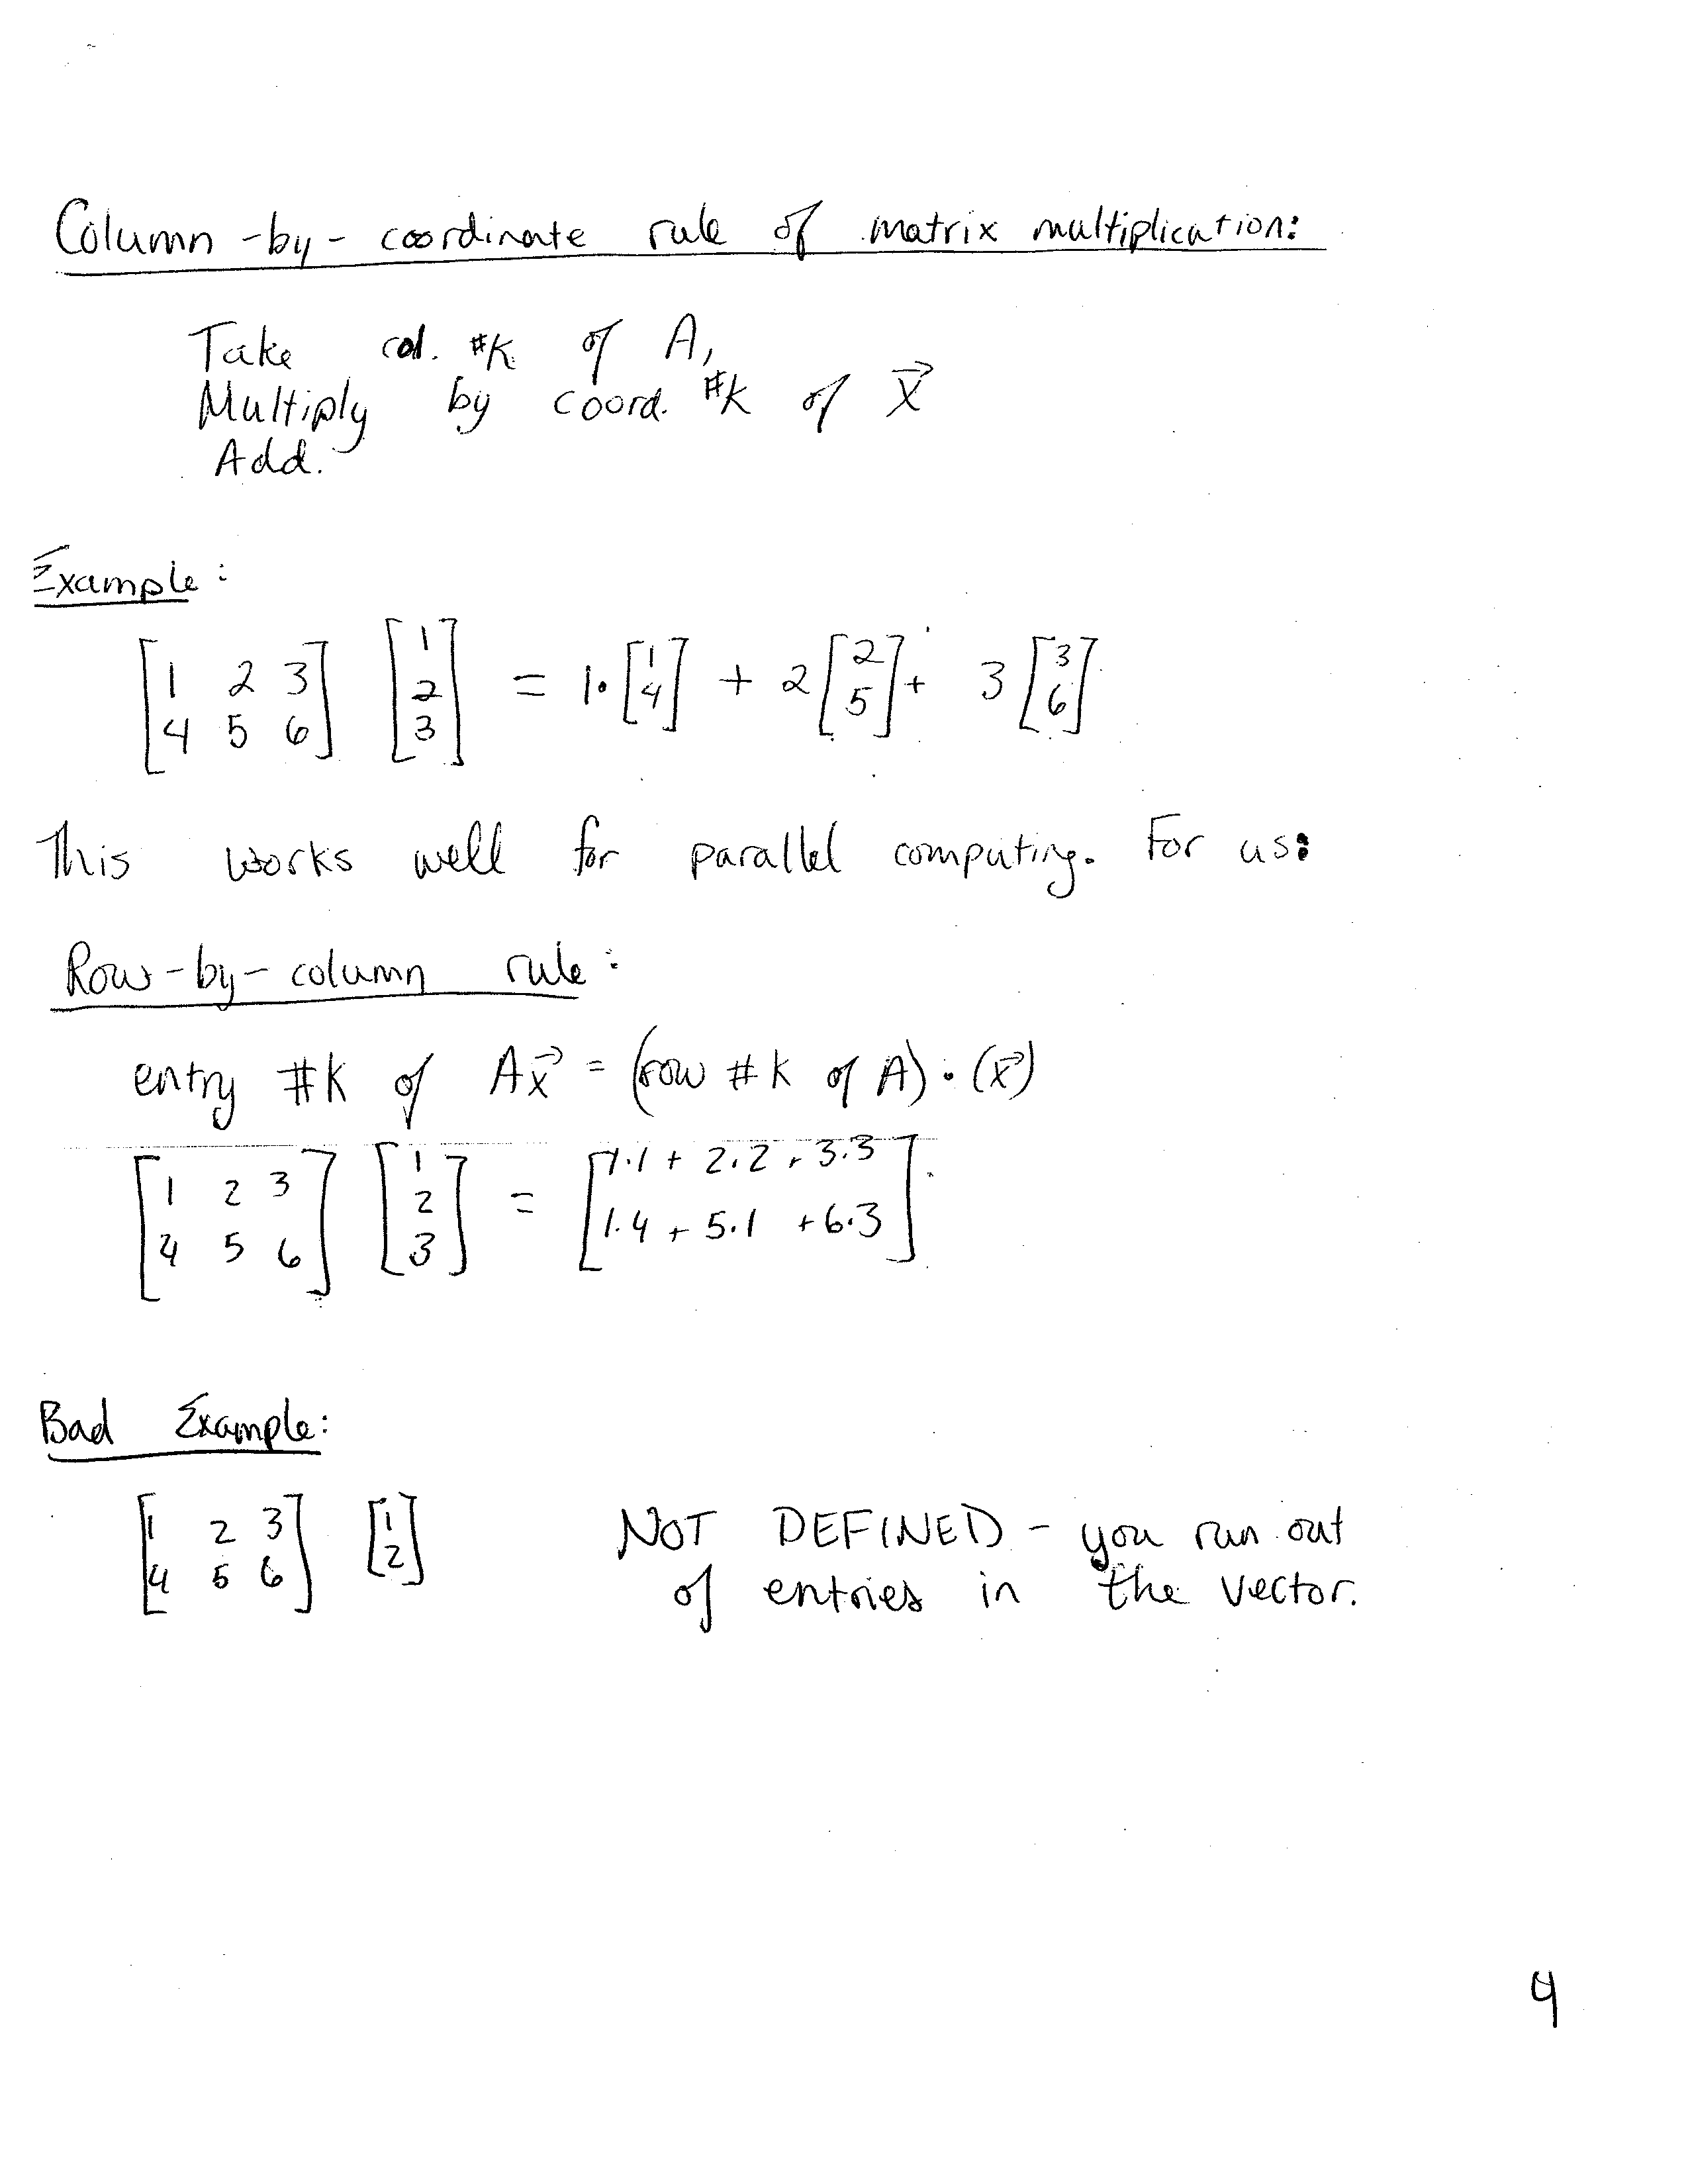 Column-by-coordinate rule of matrix multiplication:
Take col. #k of A,
Multiply by coord. #k of x⃗
Add.
Example:
[1 2 3; 4 5 6] [1; 2; 3] = 1·[1; 4] + 2[2; 5] + 3[3; 6]
This works well for parallel computing. For us:
Row-by-column rule:
entry #k of Ax⃗ = (row #k of A)·(x⃗)
[1 2 3; 4 5 6] [1; 2; 3] = [1·1 + 2·2 + 3·3; 1·4 + 5·1 + 6·3]
Bad Example:
[1 2 3; 4 5 6] [1; 2] NOT DEFINED - you run out
of entries in the vector.
4